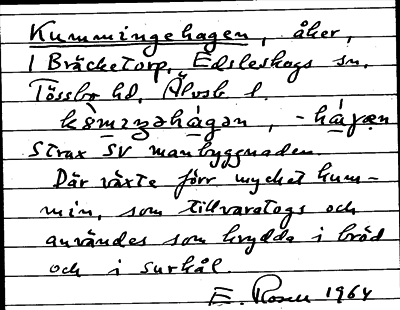 Kummingehagen, åker,
1 Bräcketorp, Edsleskogs sn.
Tössbo hd, Älvsb l.
kòmıŋəhágan, -háγæn
Strax SV manbyggnaden.
Där växte förr mycket kum-
min, som tillvaratogs och
användes som krydda i bröd
och i surkål.
E. Rosen 1964